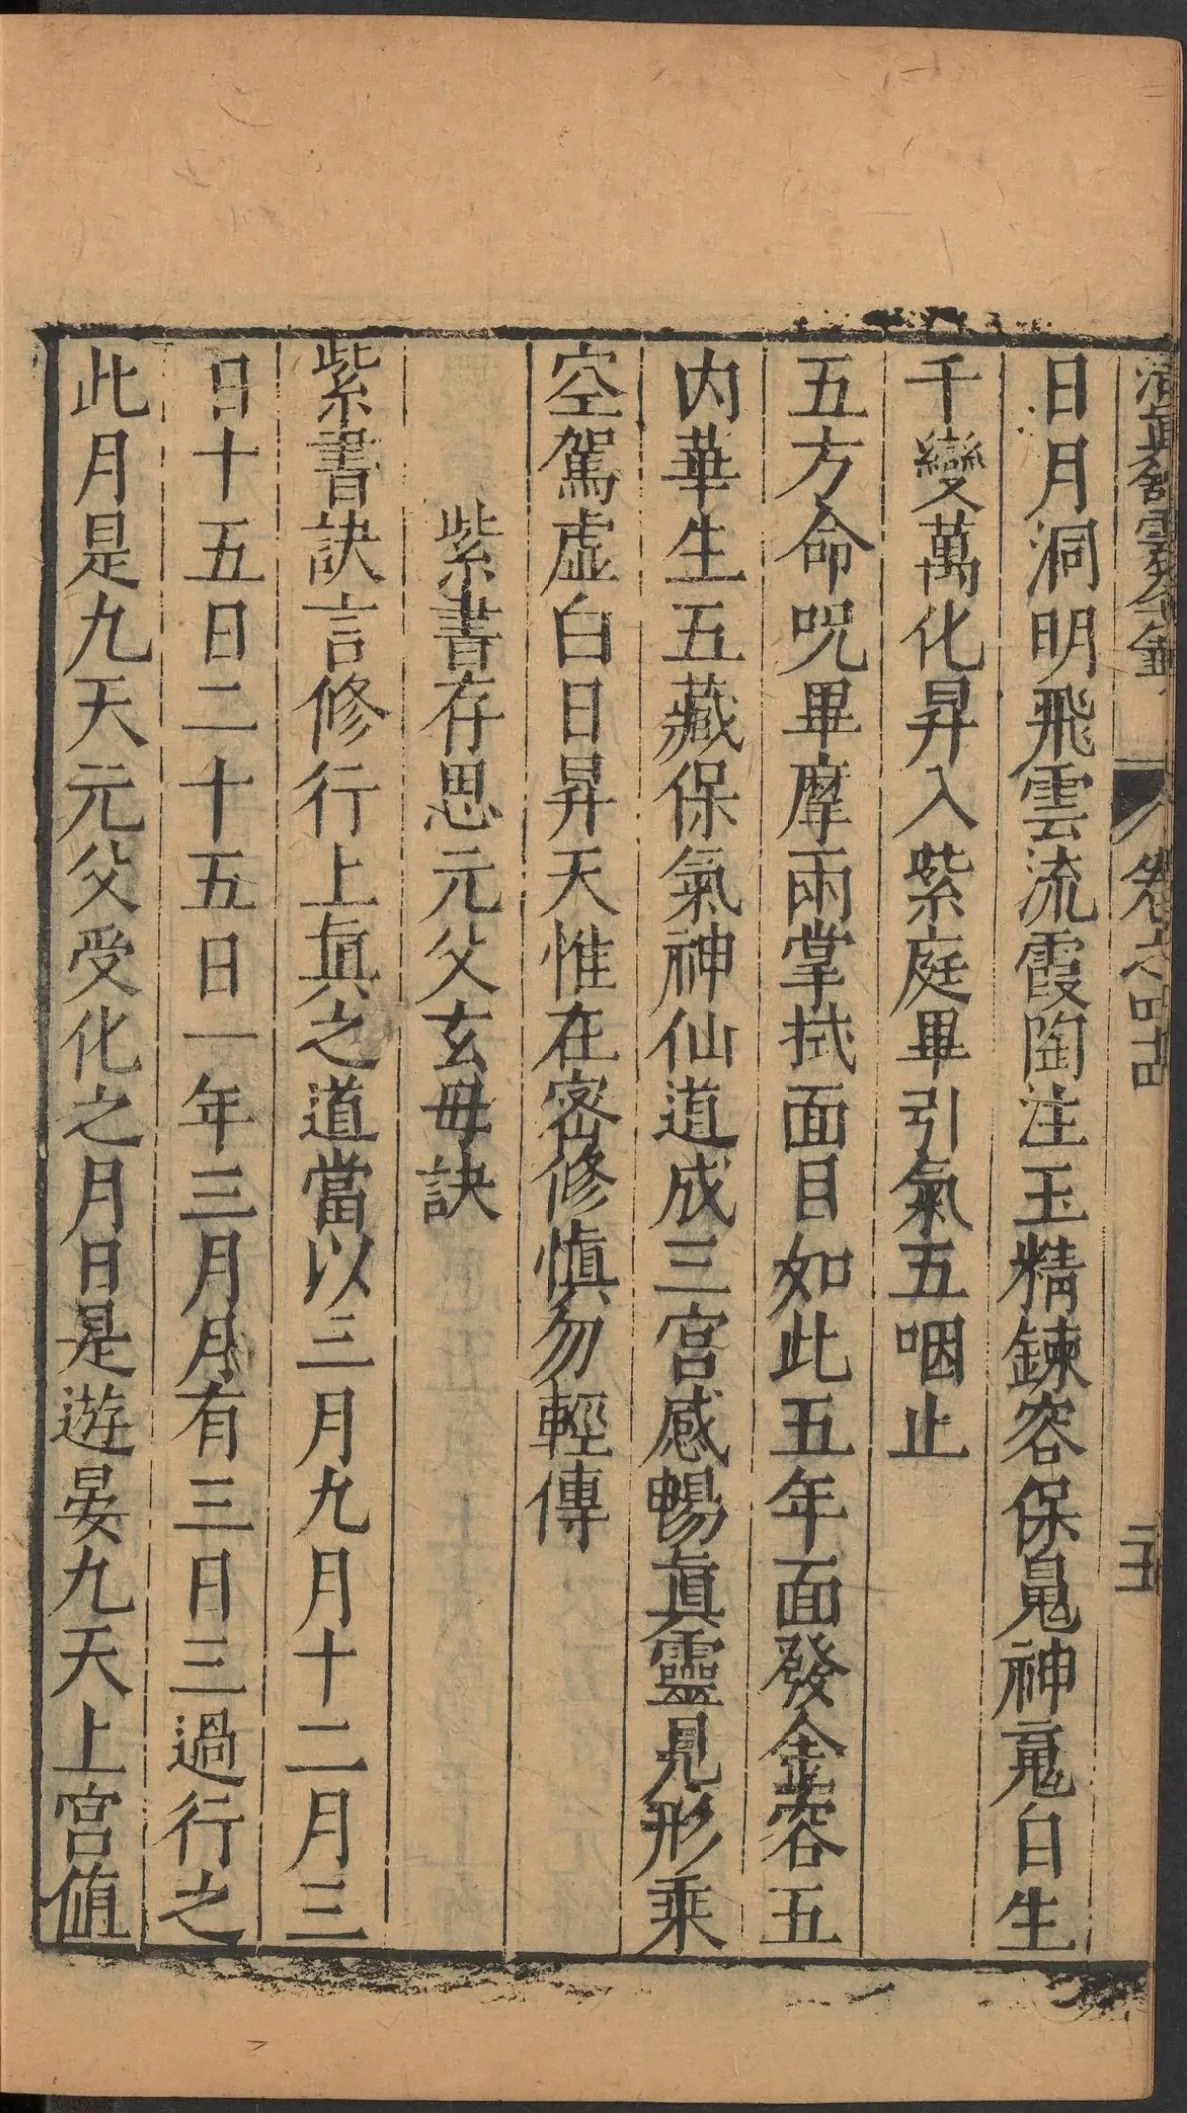 清真舘雲笈七籤 卷之四 二十五
日月洞明飛雲流霞陶注玉精鍊容保魄神䰟白生
千變萬化昇入紫庭畢引氣五咽止
五方命呪畢摩兩掌拭面目如此五年面發金容五
內華生五藏保氣神仙道成三宮感暢眞靈見形乘
空駕虛白日昇天惟在密修愼勿輕傳
紫書存思元父玄母訣
紫書訣言修行上眞之道當以三月九月十二月三
日十五日二十五日一年三月月有三日三過行之
此月是九天元父受化之月日是遊晏九天上宮値